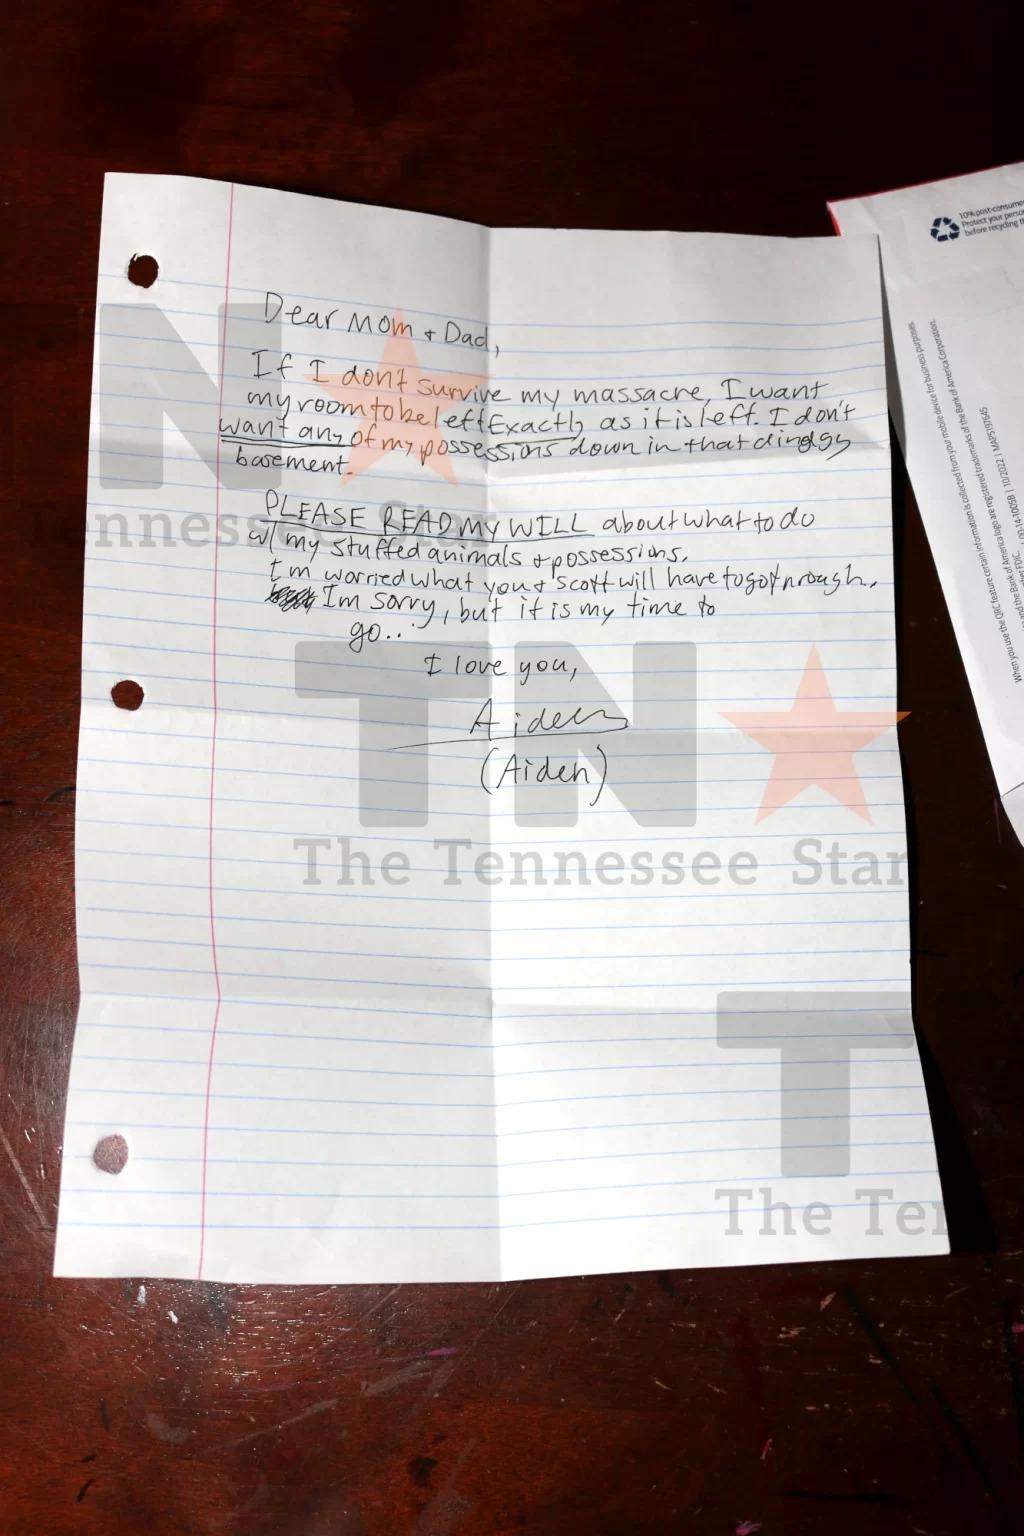 Dear Mom + Dad,
If I don't survive my massacre, I want
my room to be left Exactly as it is left. I don't
want any of my possessions down in that dinggy
basement.
PLEASE READ MY WILL about what to do
w/ my stuffed animals + possessions.
I'm worried what you + Scott will have to go through.
I'm sorry, but it is my time to
go..
I love you,
Aiden
(Aiden)
10% post-consumer
Protect your perso
before recycling th
When you use the QRC feature certain information is collected from your mobile device for business purposes.
and the Bank of America logo are registered trademarks of the Bank of America Corporation.
TN
Tennessee Star
TN
The Tennessee Star
T
The Te